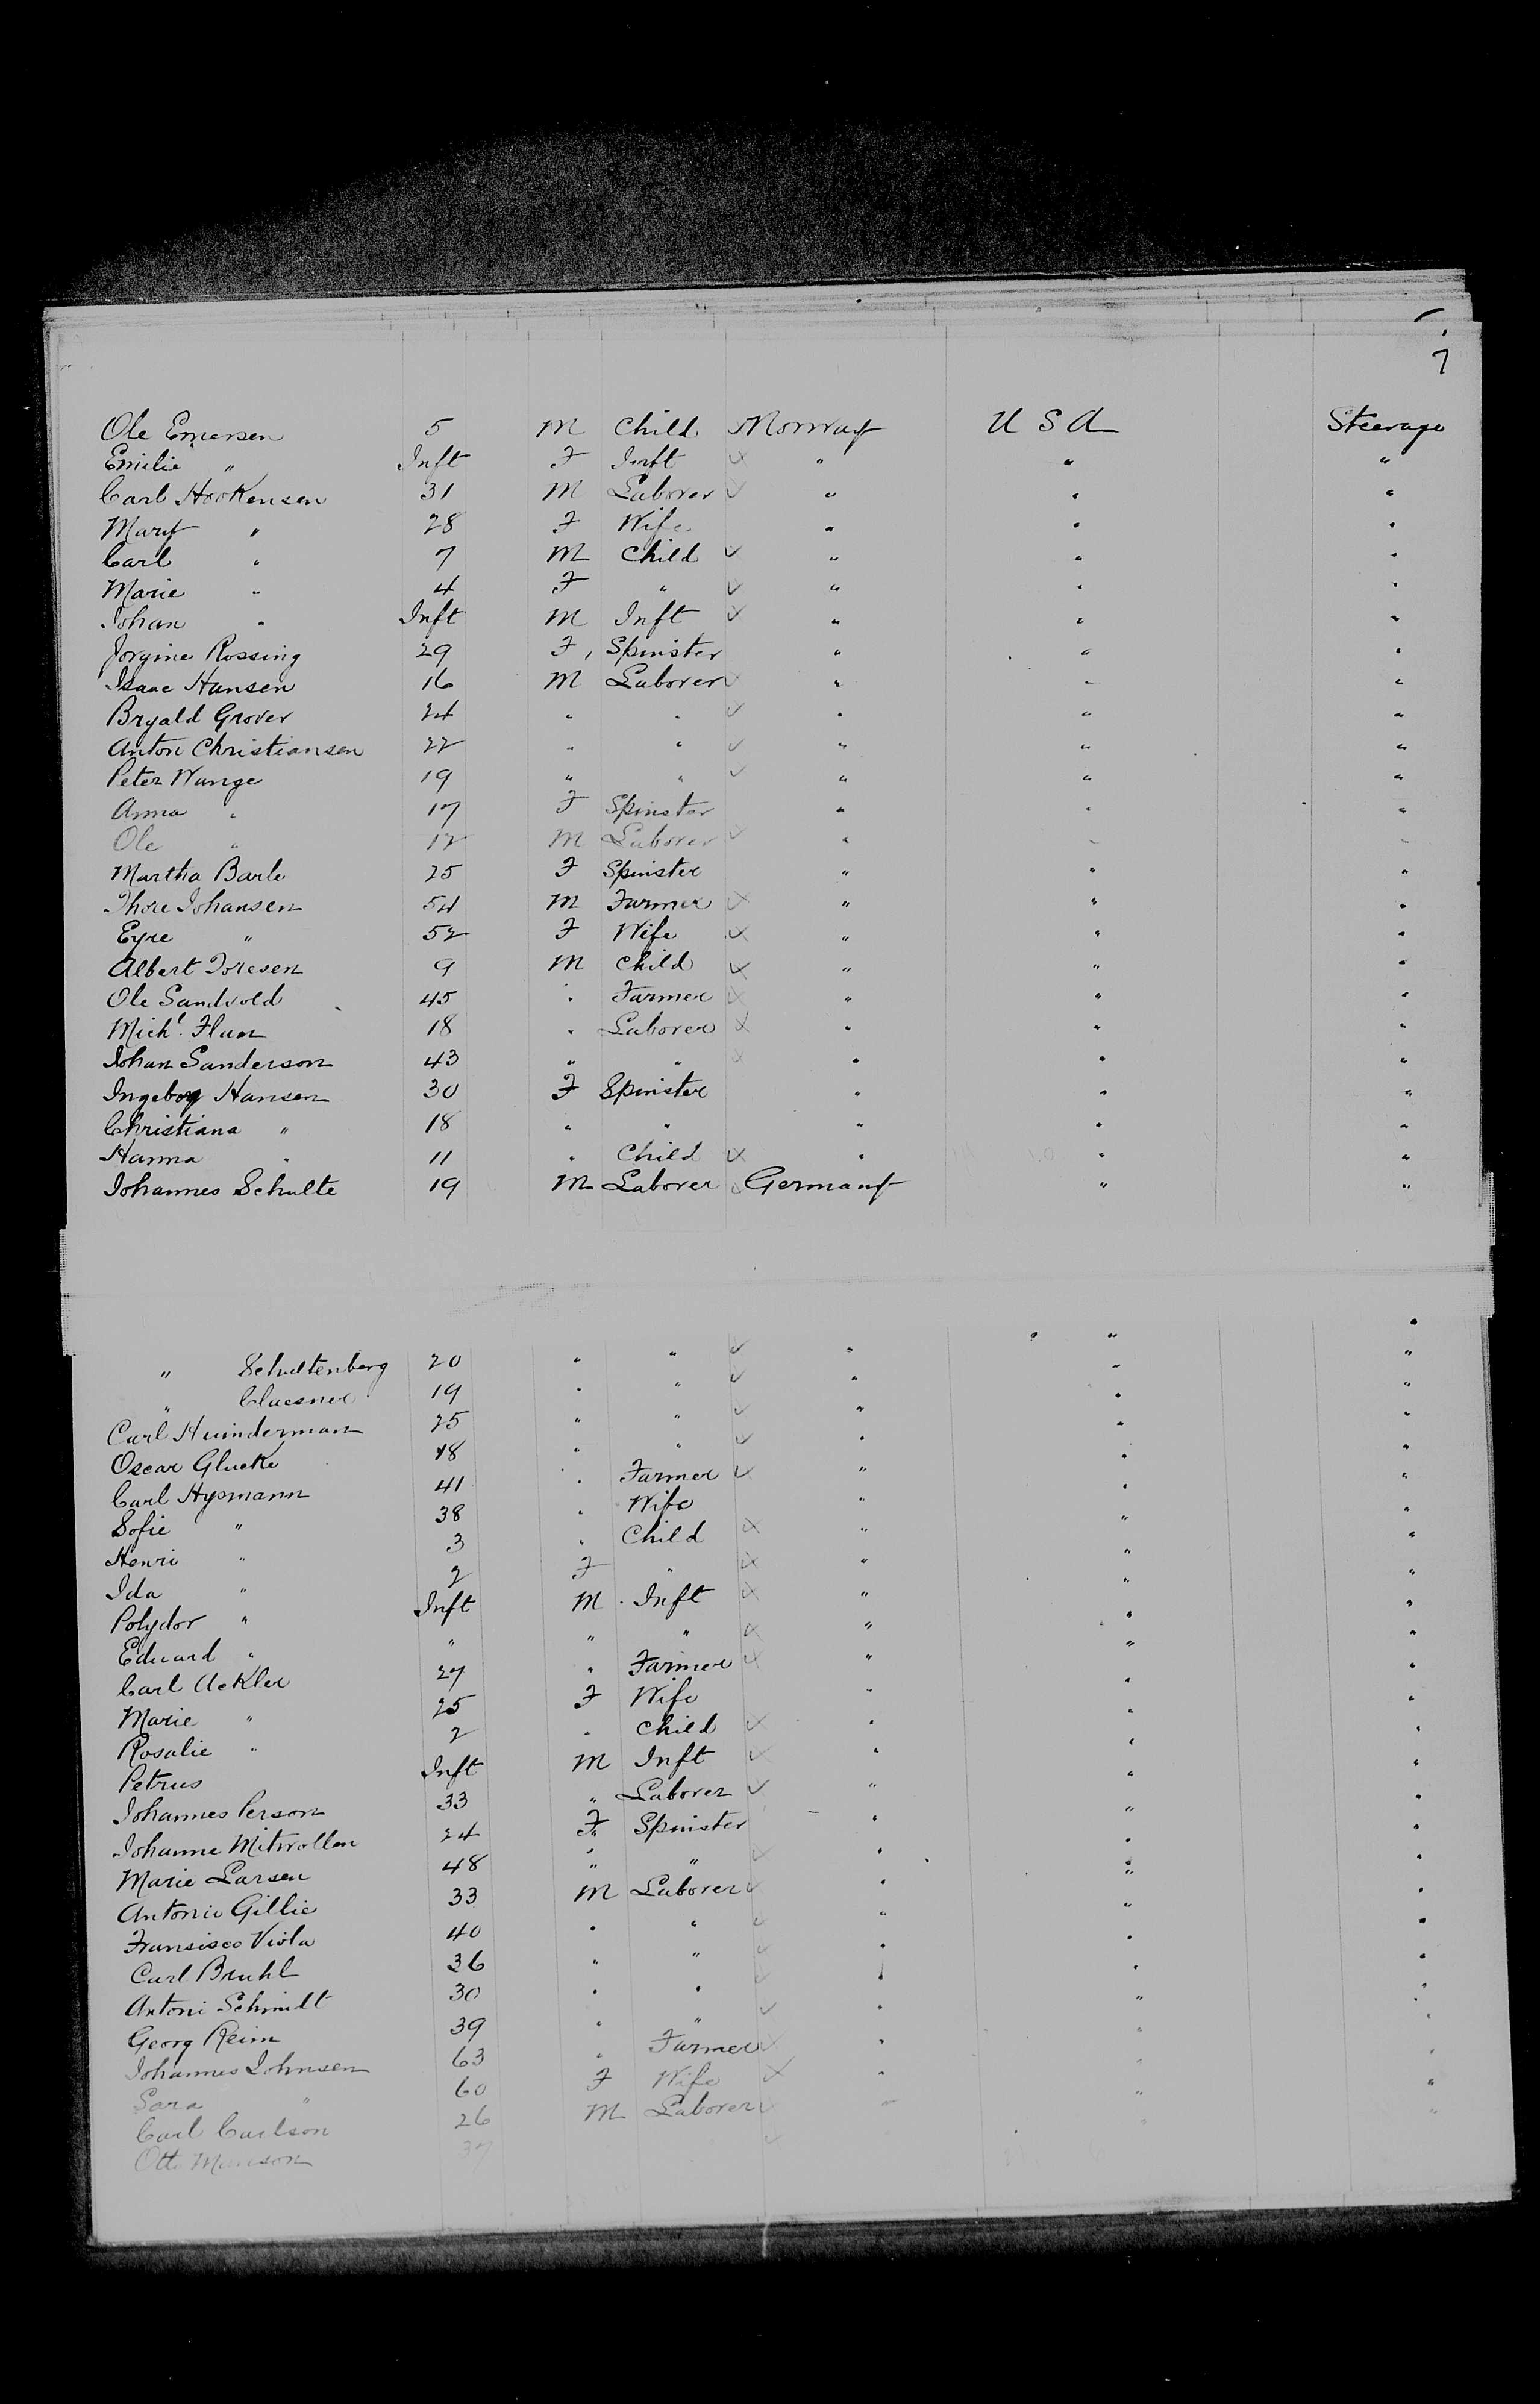 7
Ole Emersen 5 M Child Norway U S A Steerage
Emilie " Inft F Inft " " "
Carl Hookensen 31 M Laborer " " "
Mary " 28 F Wife " " "
Carl " 7 M Child " " "
Marie " 4 F " " " "
Johan " Inft M Inft " " "
Jorgine Rossing 29 F Spinster " " "
Isaac Hansen 16 M Laborer " " "
Bryald Grover 24 " " " " "
Anton Christiansen 22 " " " " "
Peter Wange 19 " " " " "
Anna " 17 F Spinster " " "
Ole " 12 M Laborer " " "
Martha Barle 25 F Spinster " " "
Thore Johansen 54 M Farmer " " "
Eyre " 52 F Wife " " "
Albert Toresen 9 M Child " " "
Ole Sandvold 45 " Farmer " " "
Michl. Flan 18 " Laborer " " "
Johan Sanderson 43 " " " " "
Ingeborg Hansen 30 F Spinster " " "
Christiana " 18 " " " " "
Hanna " 11 " Child " " "
Johannes Schulte 19 M Laborer Germany " "
" Schultenberg 20 " " " " "
" Cluesner 19 " " " " "
Carl Huinderman 25 " " " " "
Oscar Glucke 18 " " " " "
Carl Hypmann 41 " Farmer " " "
Sofie " 38 " Wife " " "
Henri " 3 " Child " " "
Ida " 2 F " " " "
Polydor " Inft M Inft " " "
Edward " " " " " " "
Carl Ackler 27 " Farmer " " "
Marie " 25 F Wife " " "
Rosalie " 2 " Child " " "
Petrus Inft M Inft " " "
Johannes Person 33 " Laborer " " "
Johanne Mitwollen 24 F Spinster " " "
Marie Larsen 48 " " " " "
Antonio Gillie 33 M Laborer " " "
Fransisco Viola 40 " " " " "
Carl Bruhl 36 " " " " "
Antoni Schmidt 30 " " " " "
Georg Reim 39 " " " " "
Johannes Johnsen 63 " Farmer " " "
Sara " 60 F Wife " " "
Carl Carlson 26 M Laborer " " "
Otto 37